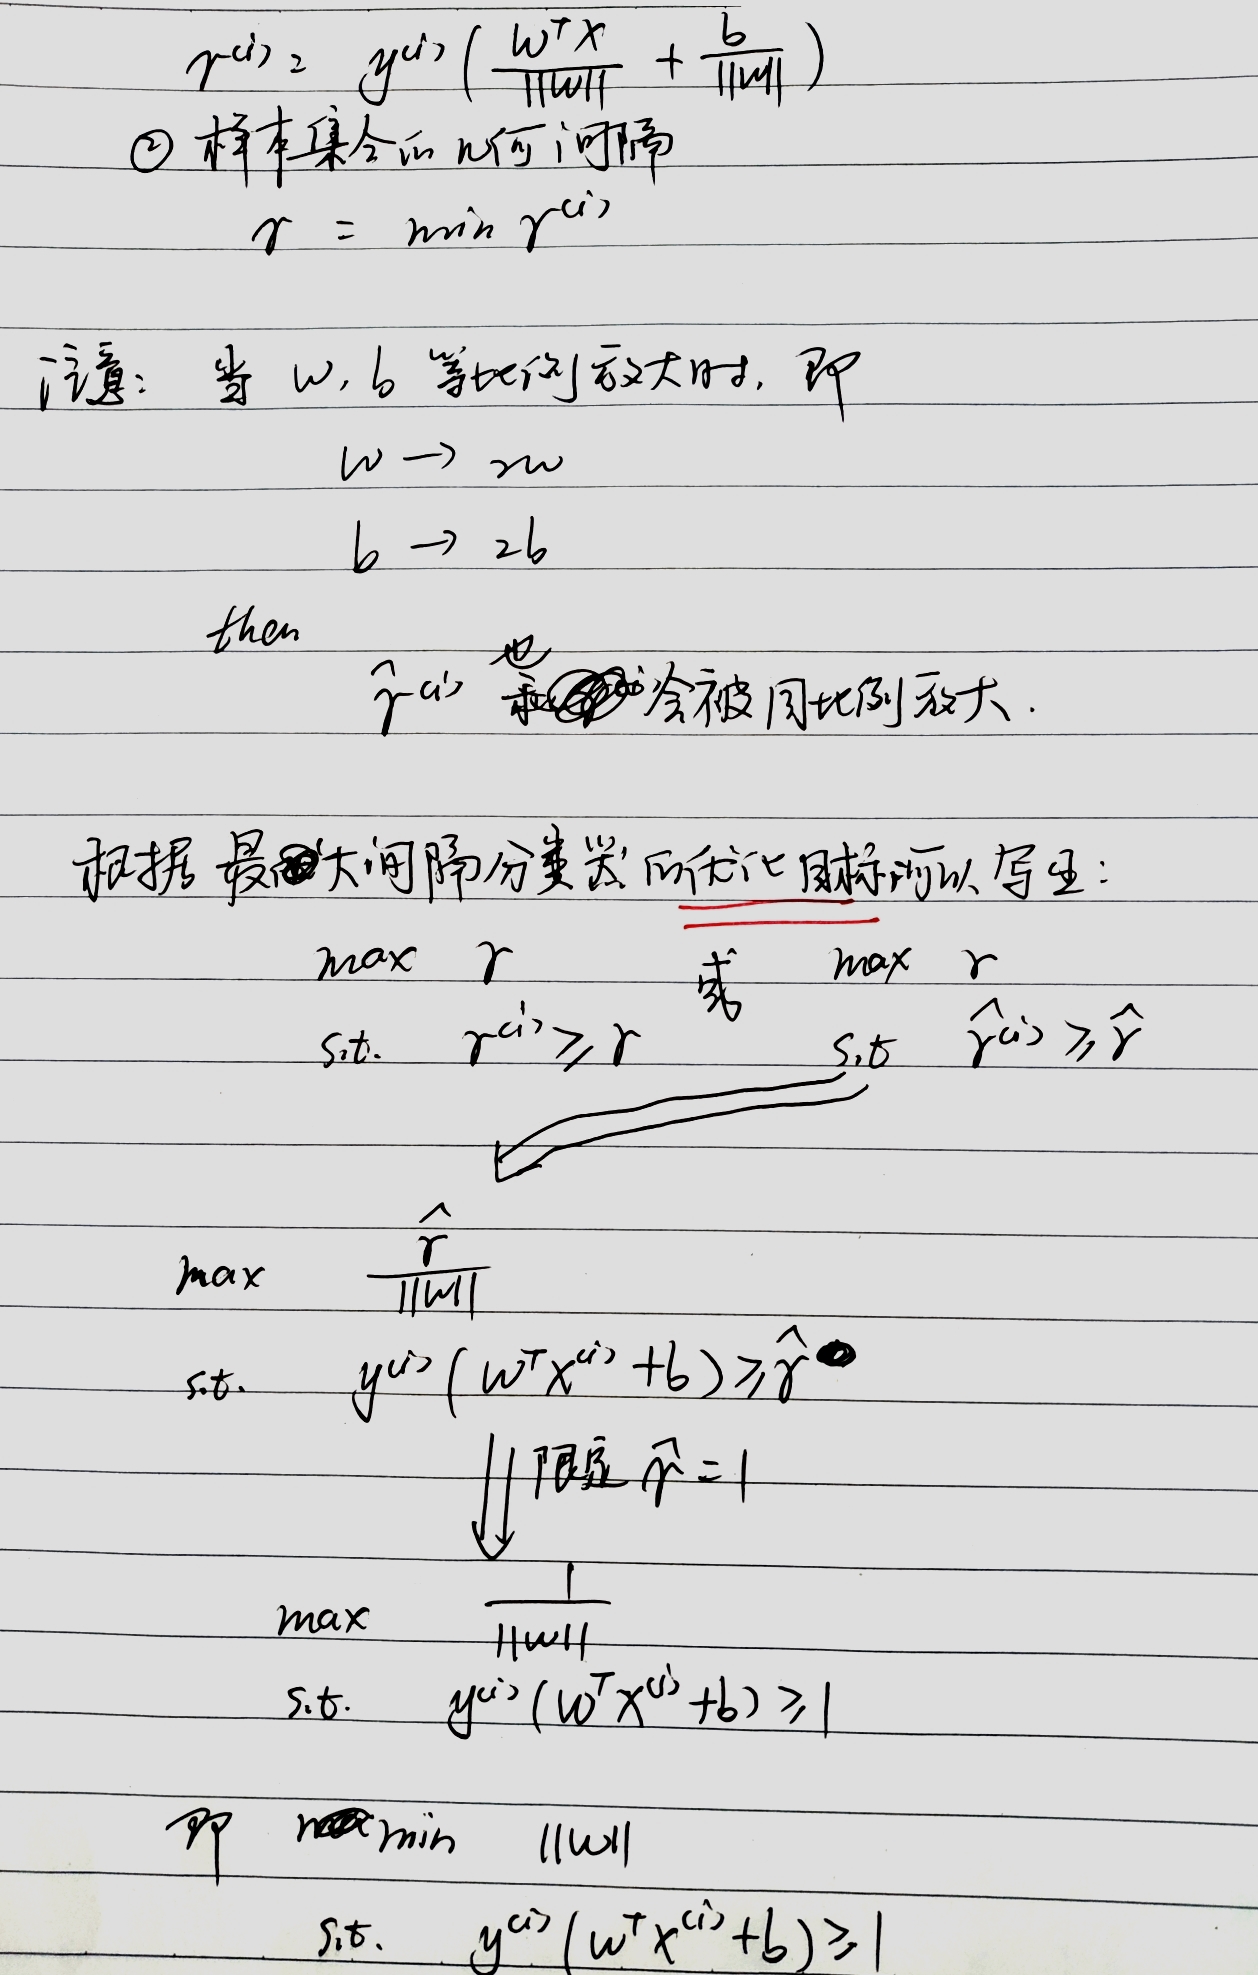 γ⁽ⁱ⁾ = y⁽ⁱ⁾ ( wᵀx / ||w|| + b / ||w|| )
② 样本集合的几何间隔
γ = min γ⁽ⁱ⁾
注意: 当 w, b 等比例放大时, 即
w → 2w
b → 2b
then
γ̂⁽ⁱ⁾ 也会被同比例放大.
根据最大间隔分类器的优化目标可以写出:
max γ 或 max γ
s.t. γ⁽ⁱ⁾ ≥ γ s.t γ̂⁽ⁱ⁾ ≥ γ̂
max γ̂ / ||w||
s.t. y⁽ⁱ⁾ ( wᵀx⁽ⁱ⁾ + b ) ≥ γ̂
限定 γ̂ = 1
max 1 / ||w||
s.t. y⁽ⁱ⁾ ( wᵀx⁽ⁱ⁾ + b ) ≥ 1
即 min ||w||
s.t. y⁽ⁱ⁾ ( wᵀx⁽ⁱ⁾ + b ) ≥ 1